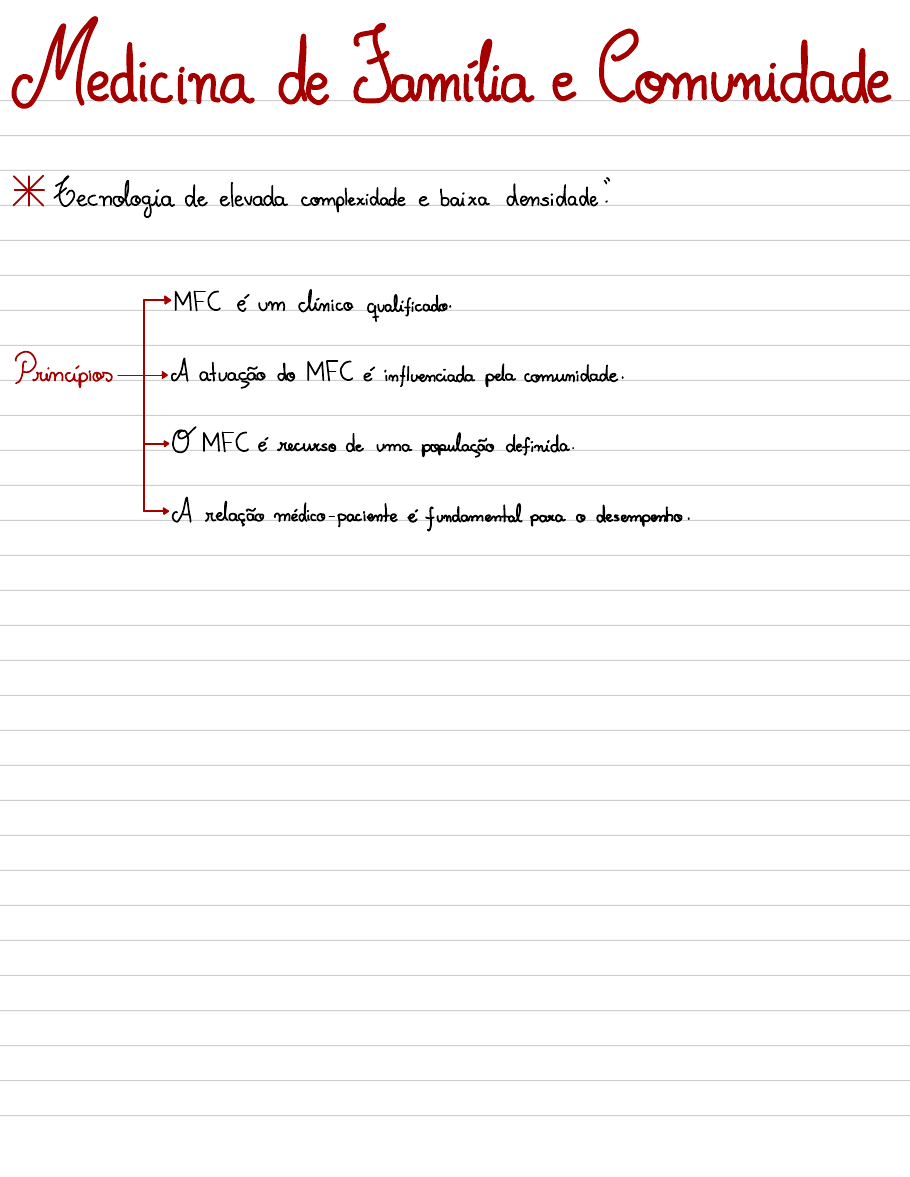 Medicina de Família e Comunidade
Tecnologia de elevada complexidade e baixa densidade".
MFC é um clínico qualificado.
Princípios
A atuação do MFC é influenciada pela comunidade.
O MFC é recurso de uma população definida.
A relação médico-paciente é fundamental para o desempenho.